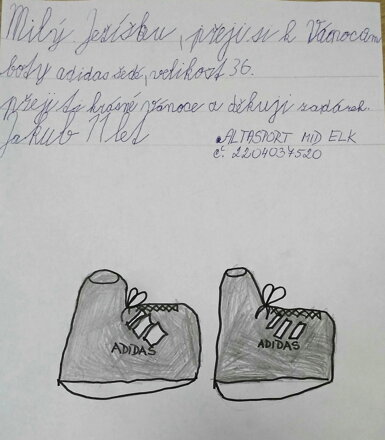 Milý Ježíšku, přeji si k Vánocům
boty adidas šedé, velikost 36.
přeji ti krásné vánoce a děkuji za dárek.
Jakub 11 let
ALTASPORT MID ELK
č. 2204037520
ADIDAS
ADIDAS